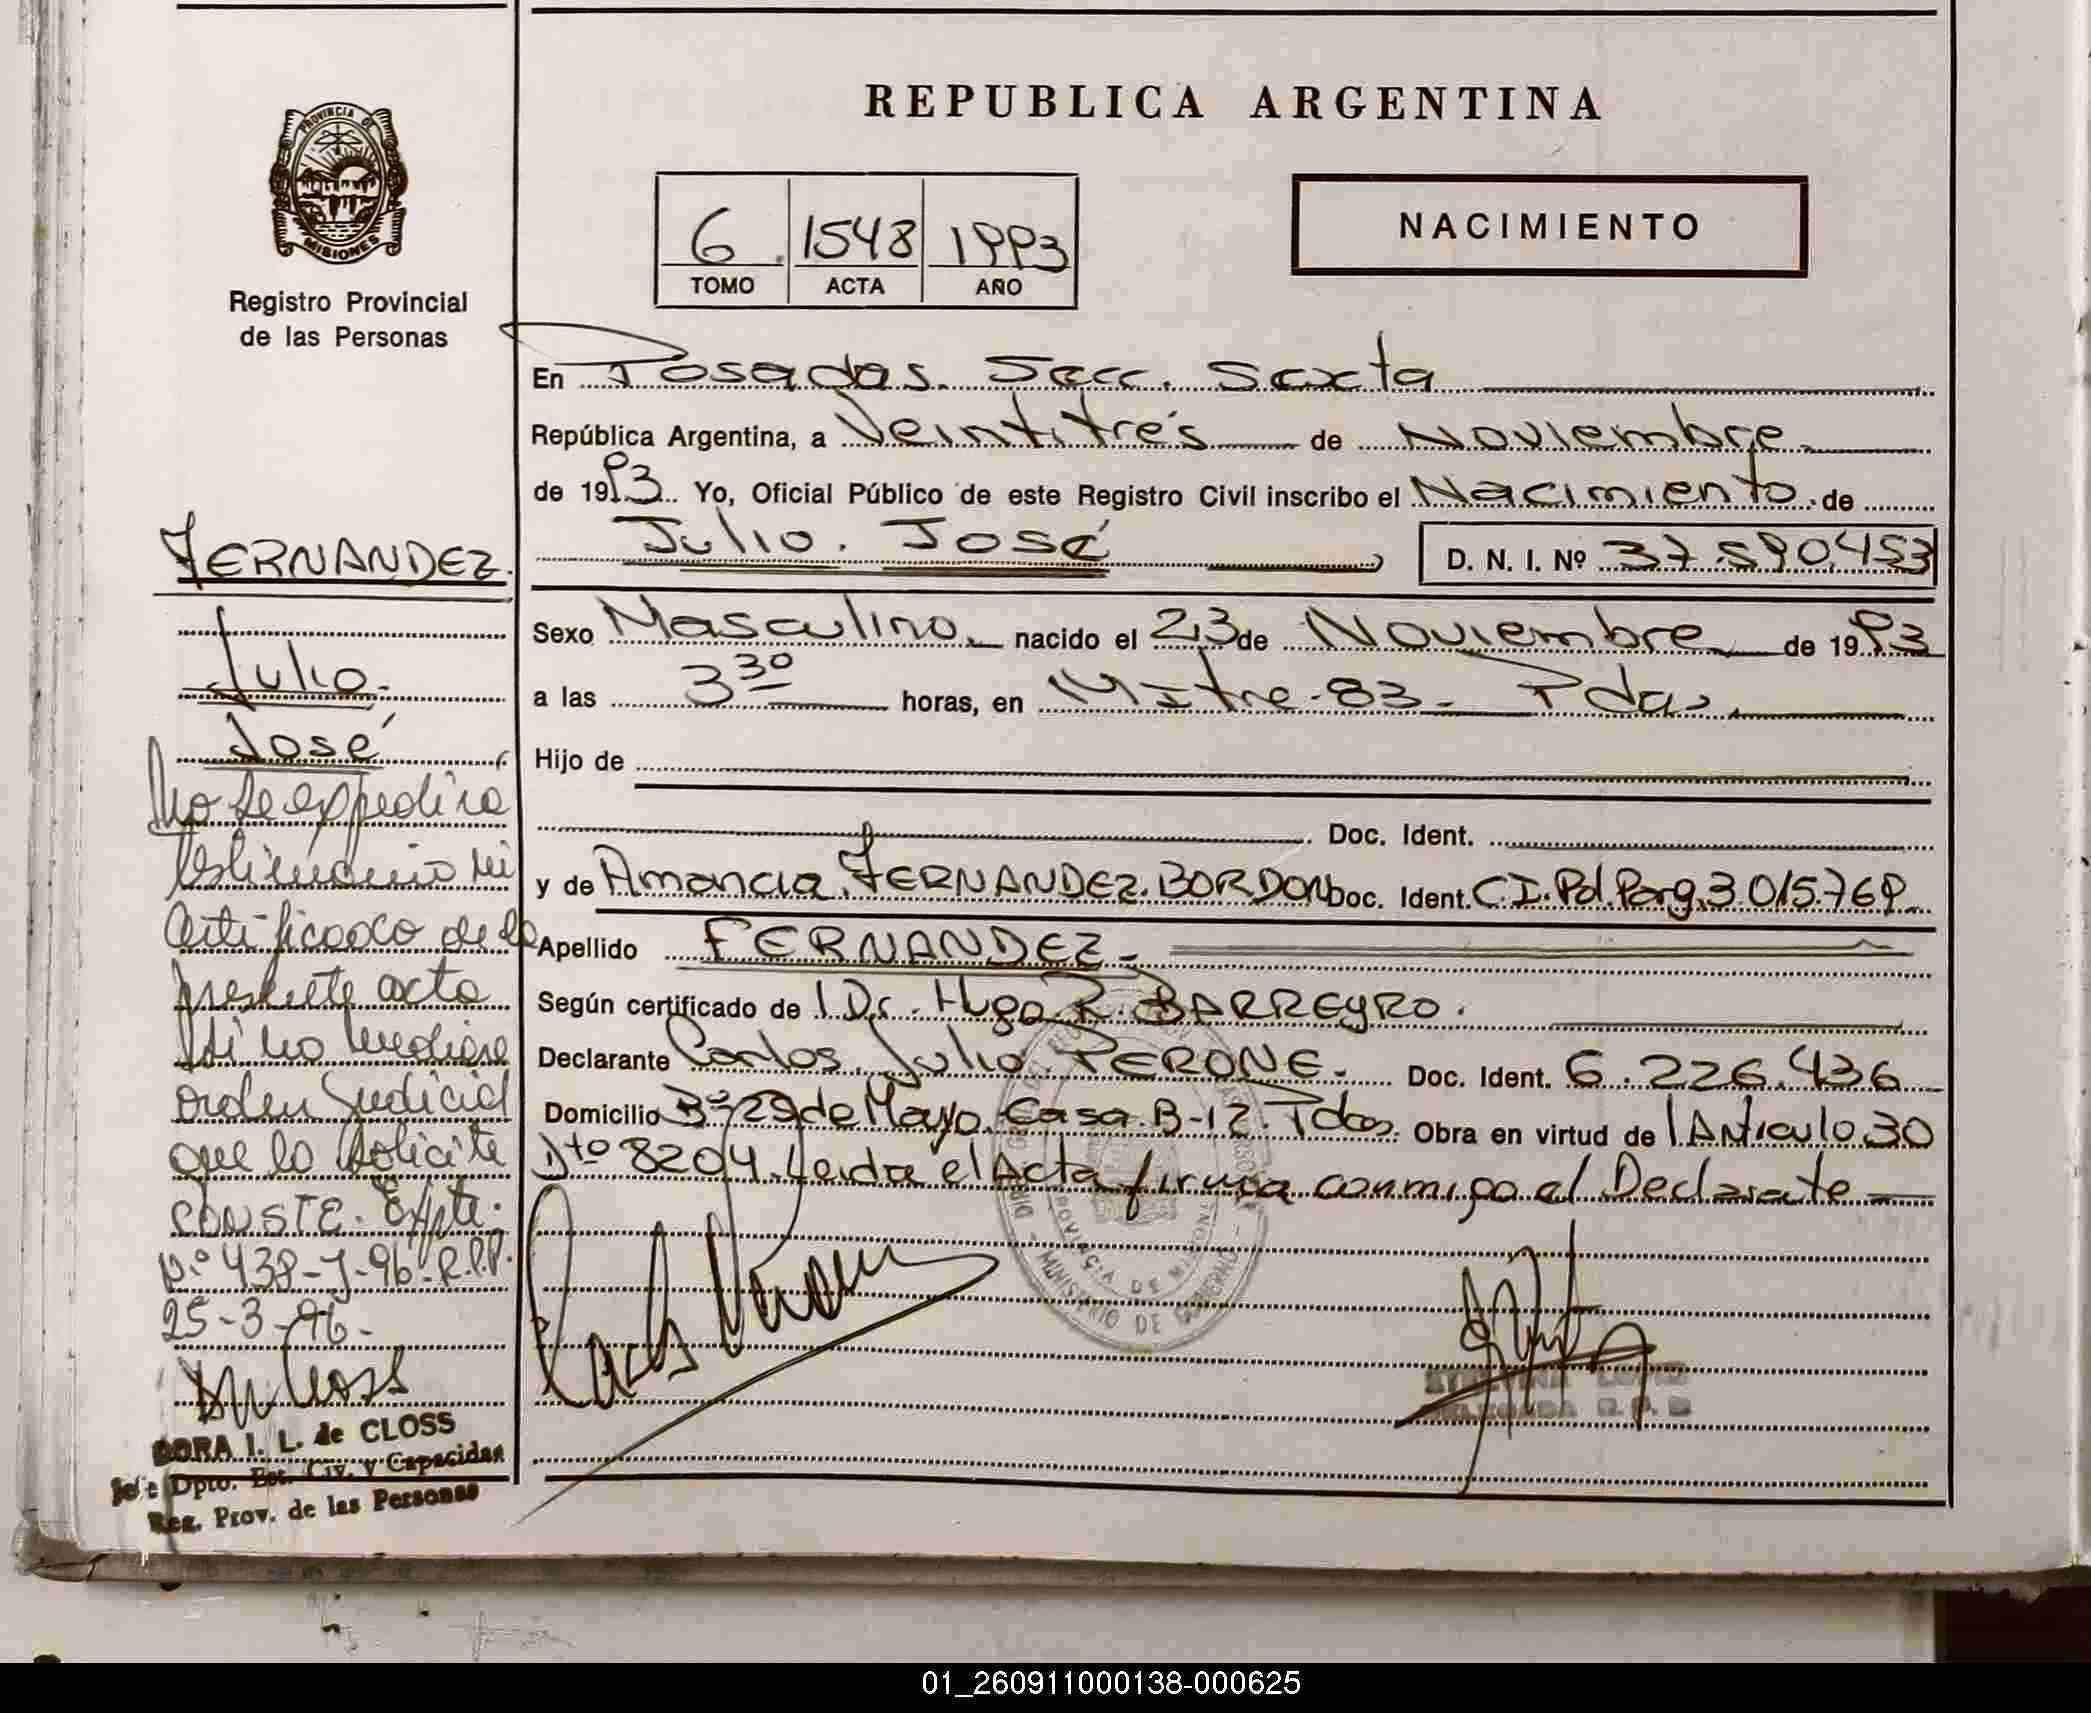 REPUBLICA ARGENTINA
PROVINCIA DE
MISIONES
Registro Provincial
de las Personas
6 1548 1993
TOMO ACTA AÑO
NACIMIENTO
En Posadas. Secc. Sexta
República Argentina, a Veintitrés de Noviembre
de 1993 Yo, Oficial Público de este Registro Civil inscribo el Nacimiento de
Julio. José D. N. I. Nº 37.590.453
Sexo Masculino nacido el 23 de Noviembre de 1993
a las 3 30 horas, en Mitre-83- Pdas
Hijo de
Doc. Ident.
y de Amancia FERNANDEZ BORDON Doc. Ident. C.I. Pol. Parg. 3.015.769
Apellido FERNANDEZ-
Según certificado de l Dr. Hugo R. BARREYRO.
Declarante Carlos Julio PERONE- Doc. Ident. 6.226.436
Domicilio Bº 29 de Mayo Casa B-12 Pdas. Obra en virtud de l Articulo 30
Dto 8204. Leida el Acta firma conmigo el Declarante
FERNANDEZ
Julio
José
No se expedira
testimonio ni
certificado de la
presente acta
si no mediare
orden Judicial
que lo solicite
CONSTE. Expte.
Nº 438-J-96-R.P.P.
25-3-96-
DORA I. L. de CLOSS
Jefe Dpto. Est. Civ. y Capacidad
Reg. Prov. de las Personas
PROVINCIA DE MISIONES
MINISTERIO DE GOBIERNO
LOPEZ
DELEGADA
01_260911000138-000625